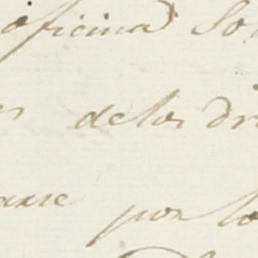 oficina So
delos dr
por lo